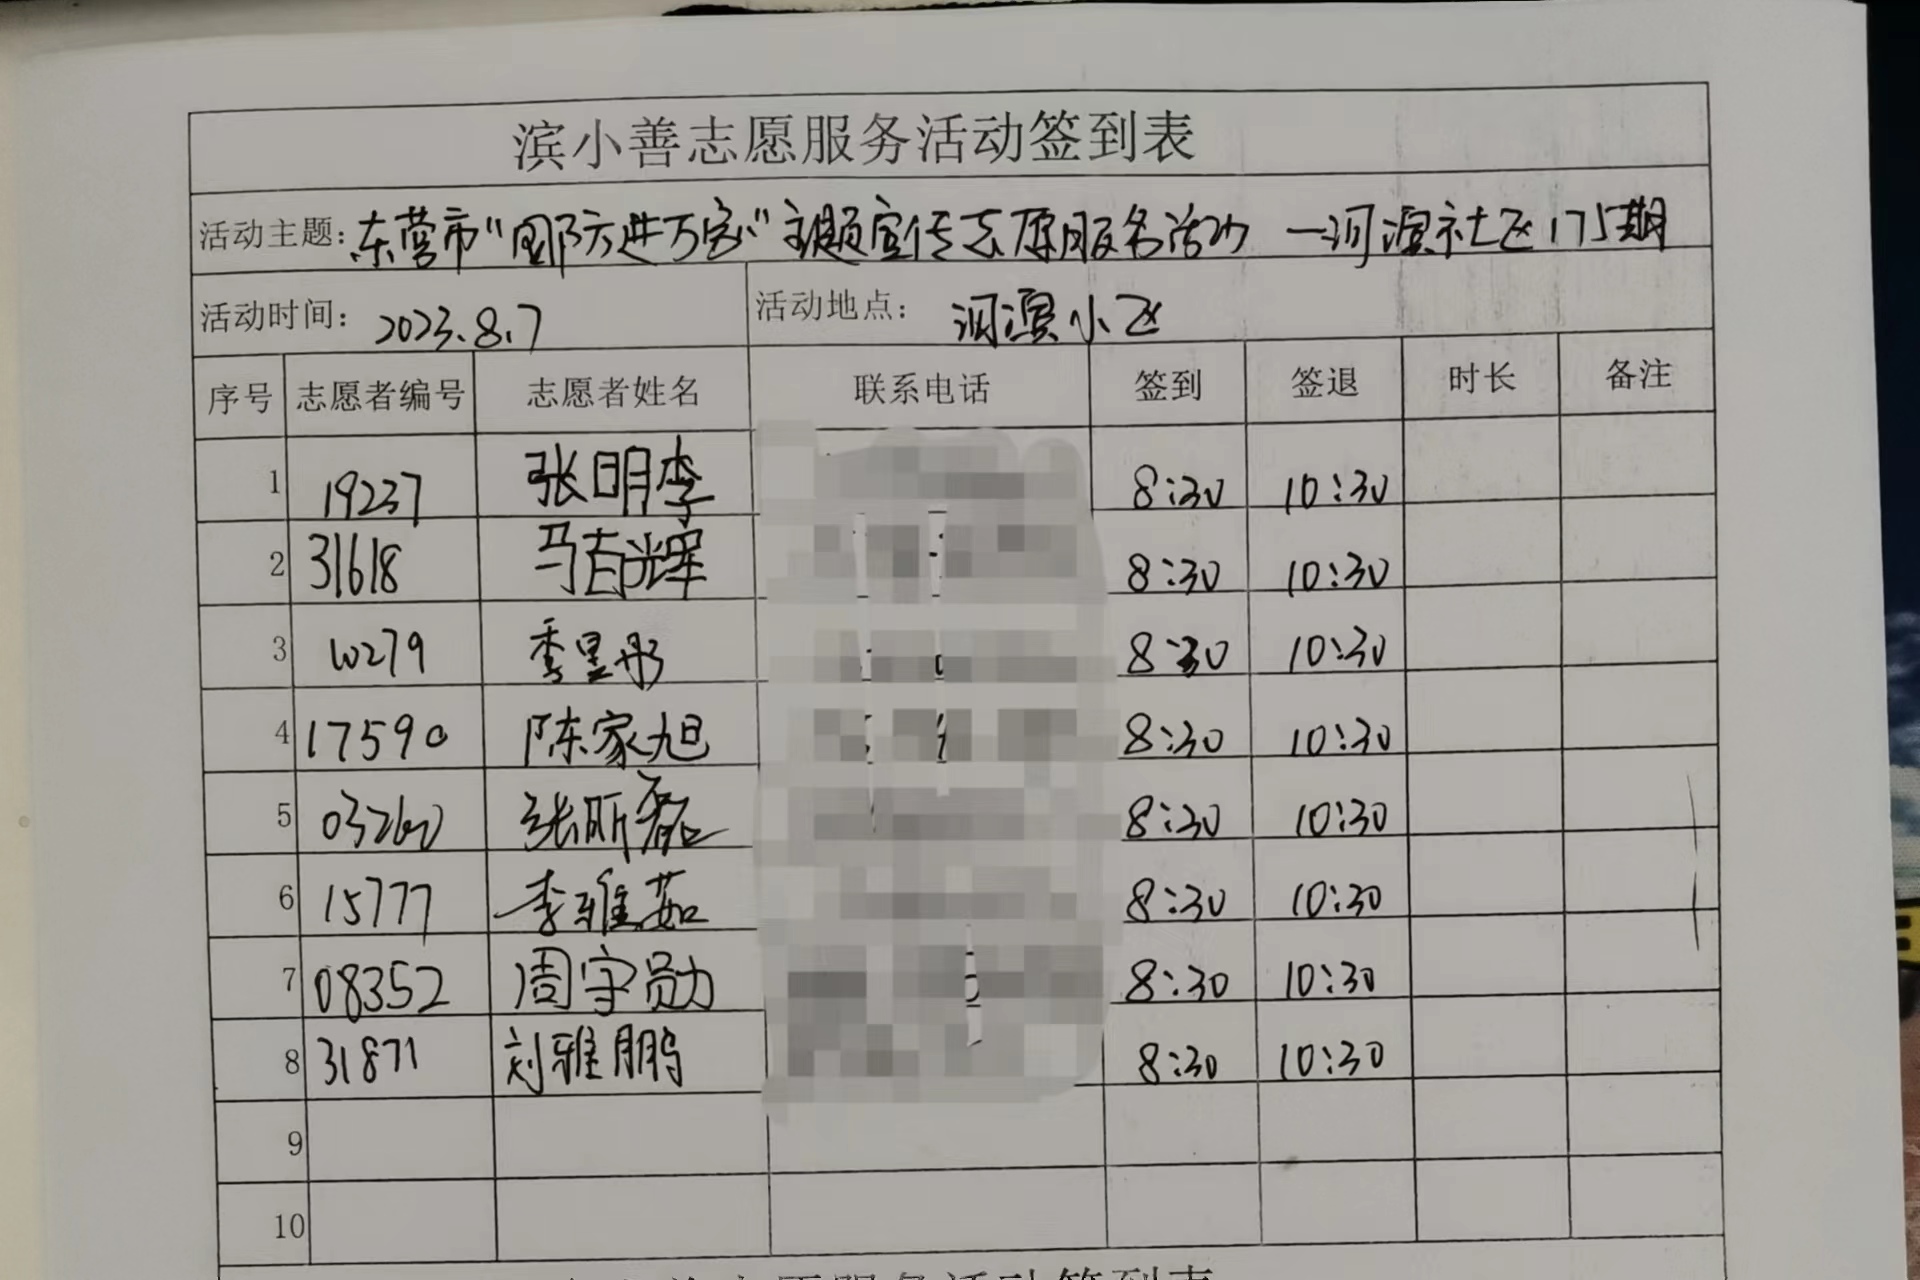 滨小善志愿服务活动签到表
活动主题：东营市“国防进万家”主题宣传志愿服务活动 —河滨社区175期
活动时间： 2023.8.7 活动地点： 河滨小区
序号 志愿者编号 志愿者姓名 联系电话 签到 签退 时长 备注
1 19237 张明李 8:30 10:30
2 31618 马吉辉 8:30 10:30
3 10279 季昱彤 8:30 10:30
4 17590 陈家旭 8:30 10:30
5 03260 张昕磊 8:30 10:30
6 15777 李雅茹 8:30 10:30
7 08352 周守勋 8:30 10:30
8 31871 刘雅鹏 8:30 10:30
9
10